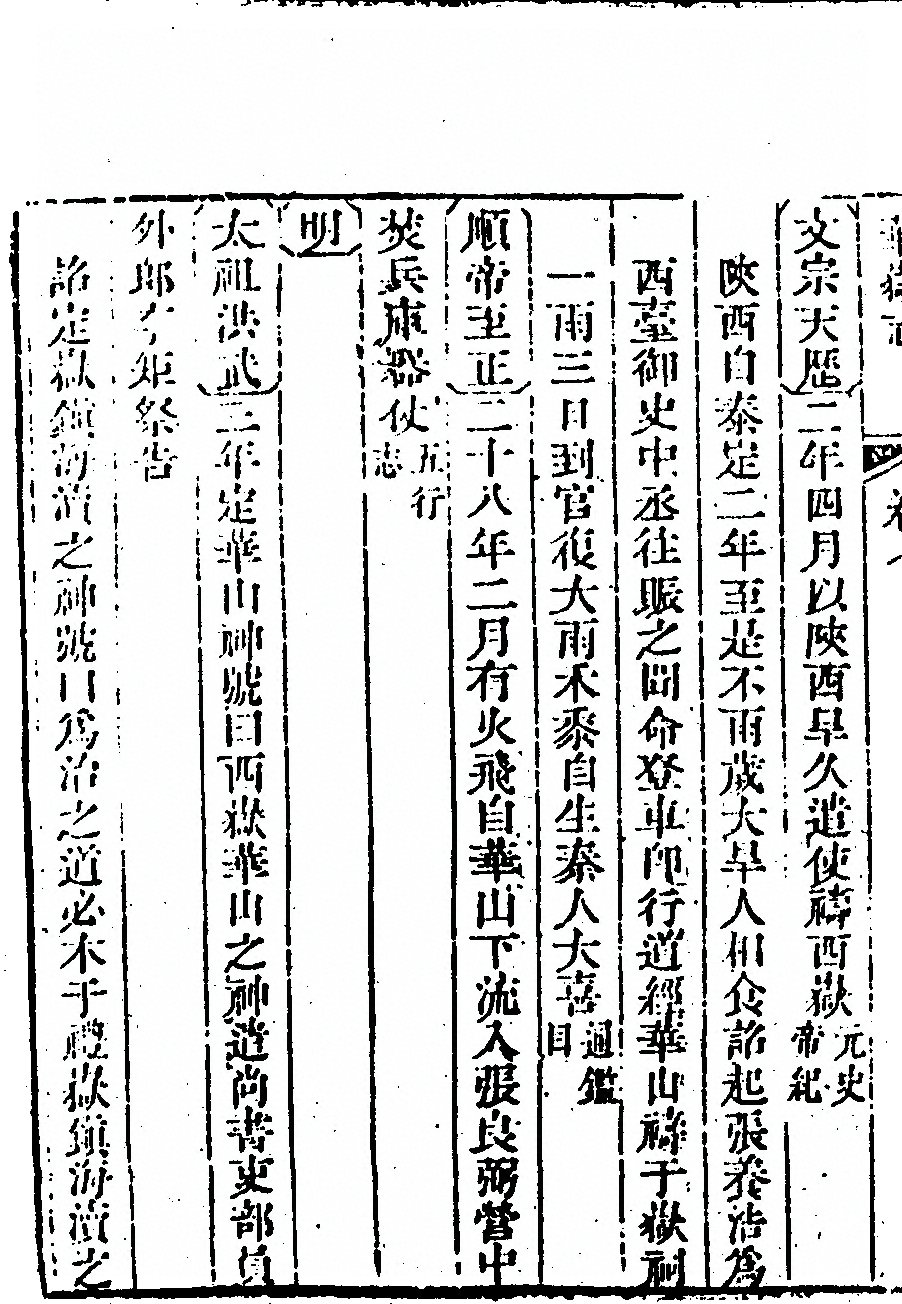 華嶽志 卷一
文宗天歷二年四月以陝西旱久遣使禱西嶽元史帝紀
陝西自泰定二年至是不雨歲大旱人相食詔起張養浩為
西臺御史中丞往賑之聞命登車卽行道經華山禱于嶽祠
一雨三日到官復大雨禾黍自生秦人大喜通鑑目
順帝至正二十八年二月有火飛自華山下流入張良弼營中
焚兵庫器仗五行志
明
太祖洪武二年定華山神號曰西嶽華山之神遣尚書吏部員
外郎矩祭告
詔定嶽鎮海瀆之神號曰為治之道必本于禮嶽鎮海瀆之